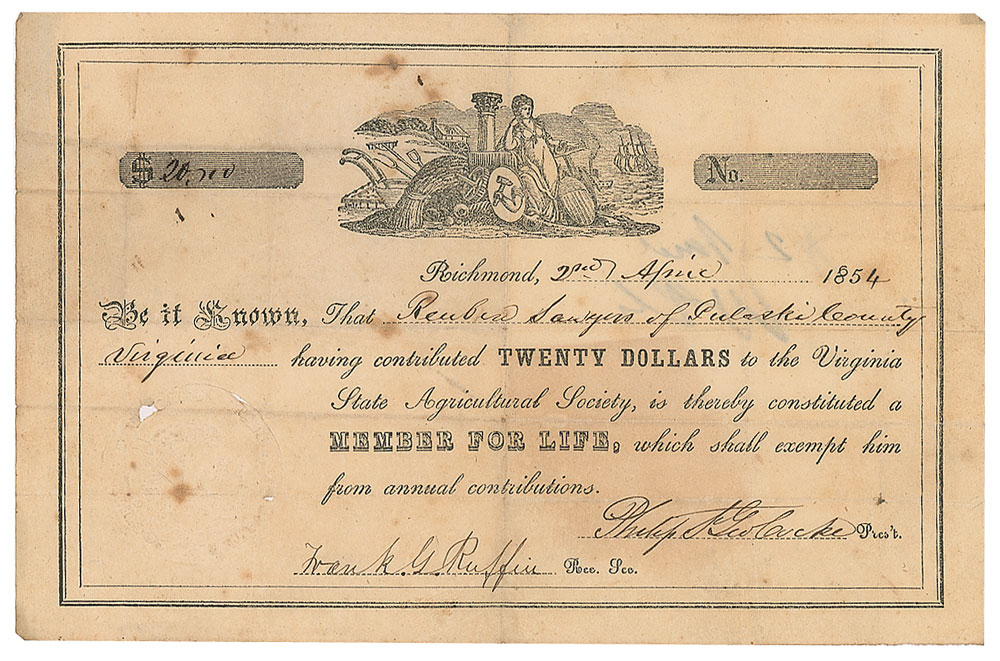 $ 20,00
No.
Richmond, 2nd April 1854
Be it Known, That Reuben Sawyers of Pulaski County
Virginia having contributed TWENTY DOLLARS to the Virginia
State Agricultural Society, is thereby constituted a
MEMBER FOR LIFE, which shall exempt him
from annual contributions.
Philip St Geo Cocke Pres't.
Frank. G. Ruffin Rec. Sec.